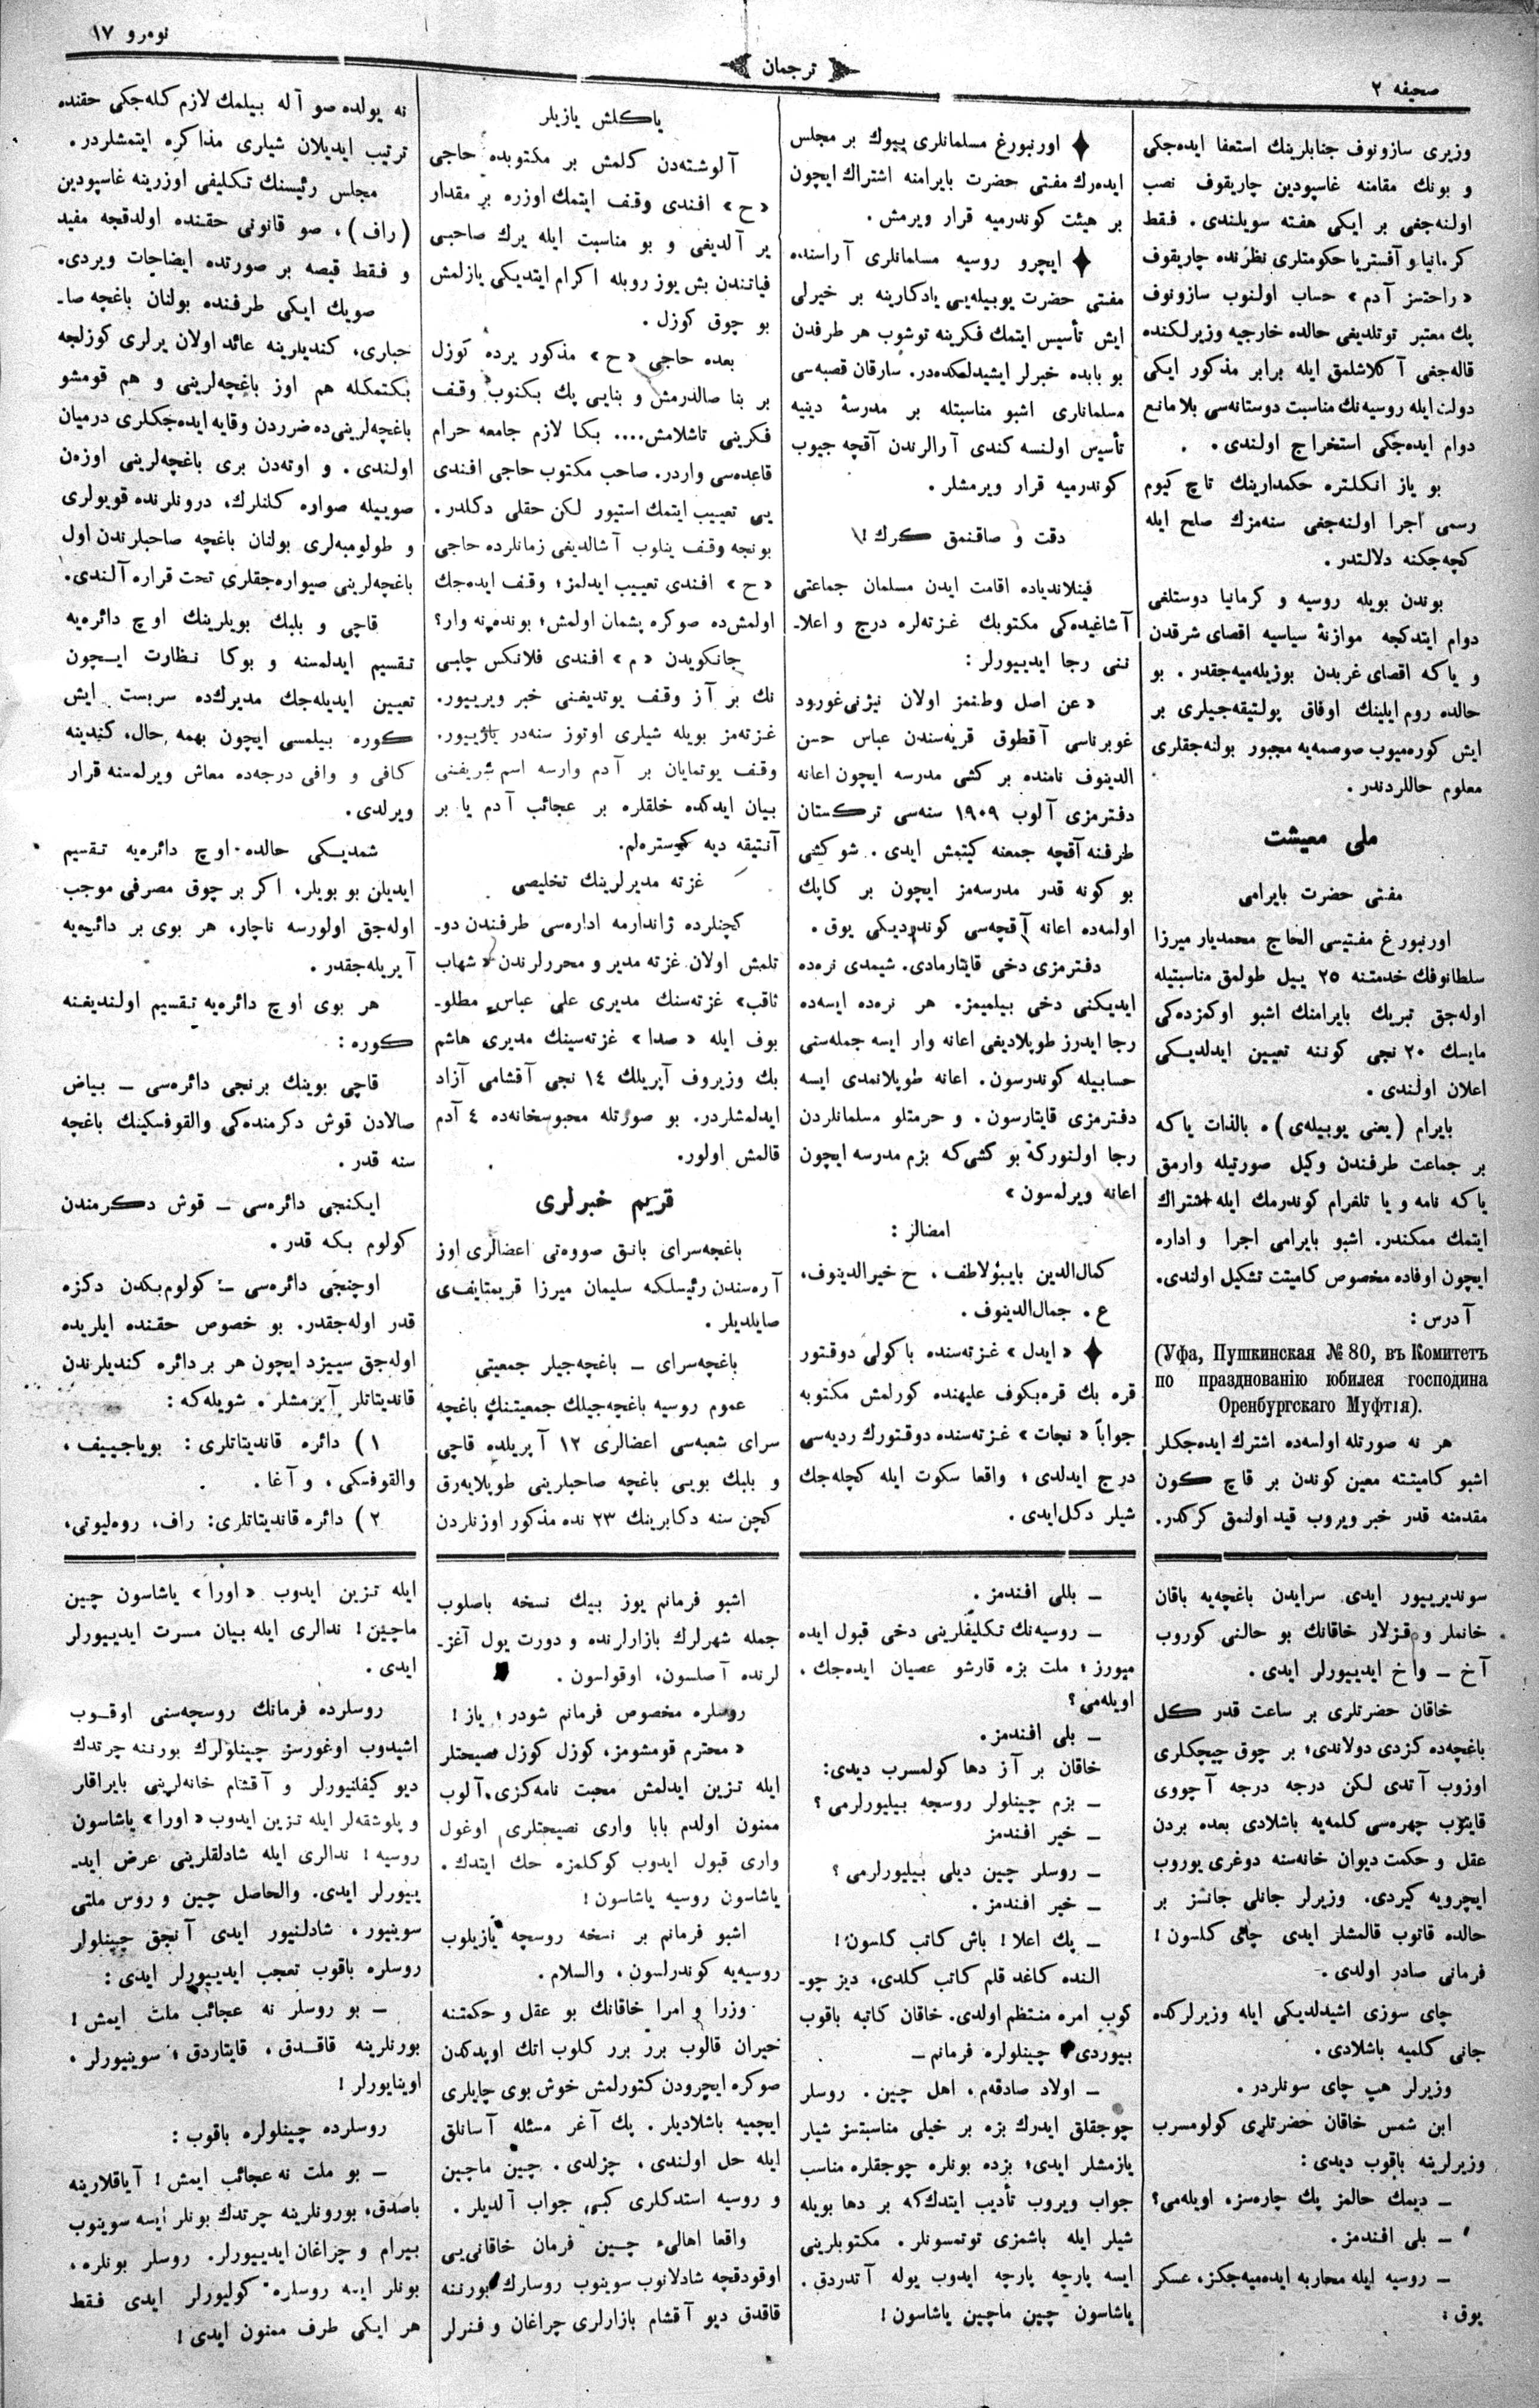 صحیفه ٢
ترجمان
نومرو ١٧
وزیری سازونوف جنابلرینك استعفا ایده‌جكی
و بونك مقامنه غاسپودین چاریقوف نصب
اولنه‌جغی بر ایكی هفته سویلندی. فقط
كرمانیا و آفستریا حكومتلری نظرنده چاریقوف
«راحتسز آدم» حساب اولنوب سازونوف
پك معتبر توتلدیغی حالده خارجیه وزیرلكنده
قاله‌جغی آكلاشلمق ایله برابر مذكور ایكی
دولت ایله روسیه‌نك مناسبت دوستانه‌سی بلا مانع
دوام ایده‌جكی استخراج اولندی.
بو یاز انكلتره حكمدارینك تاج كیوم
رسمی اجرا اولنه‌جغی سنه‌مزك صلح ایله
كچه‌جكنه دلالتدر.
بوندن بویله روسیه و كرمانیا دوستلغی
دوام ایتدكچه موازنهٔ سیاسیه اقصای شرقدن
و یاكه اقصای غربدن بوزیله‌میه‌جقدر. بو
حالده روم ایلینك اوفاق پولتیقه‌جیلری بر
ایش كوره‌میوب صوصمه‌یه مجبور بولنه‌جقلری
معلوم حاللردندر.
ملی معیشت
مفتی حضرت بایرامی
اورنبورغ مفتیسی الحاج محمدیار میرزا
سلطانوفك خدمتنه ٢٥ ییل طولمق مناسبتیله
اوله‌جق تبریك بایرامنك اشبو اوكمزده‌كی
مایسك ٢٠ نجی كوننه تعیین ایدلدیكی
اعلان اولندی.
بایرام (یعنی یوبیله‌ی). بالذات یاكه
بر جماعت طرفندن وكیل صورتیله وارمق
یاكه نامه و یا تلغرام كوندرمك ایله اشتراك
ایتمك ممكندر. اشبو بایرامی اجرا و اداره
ایچون اوفاده مخصوص كامیتت تشكیل اولندی.
آدرس :
(Уфа, Пушкинская №80, въ Комитетъ
по празднованію юбилея господина
Оренбургскаго Муфтія).
هر نه صورتله اولسه‌ده اشترك ایده‌جكلر
اشبو كامیتته معین كوندن بر قاچ كون
مقدمنه قدر خبر ویروب قید اولنمق كركدر.
اورنبورغ مسلمانلری بیوك بر مجلس
ایده‌رك مفتی حضرت بایرامنه اشتراك ایچون
بر هیئت كوندرمیه قرار ویرمش.
ایچرو روسیه مسلمانلری آراسنده
مفتی حضرت یوبیله‌یی یادكارینه بر خیرلی
ایش تأسیس ایتمك فكرینه توشوب هر طرفدن
بو بابده خبرلر ایشیدلمكده‌در. سارقان قصبه‌سی
مسلمانلری اشبو مناسبتله بر مدرسهٔ دینیه
تأسیس اولنسه كندی آرالرندن آقچه جیوب
كوندرمیه قرار ویرمشلر.
دقت و صاقنمق كرك !
فینلاندیاده اقامت ایدن مسلمان جماعتی
آشاغیده‌كی مكتوبك غزته‌لره درج و اعلا-
ننی رجا ایدییورلر :
«عن اصل وطنمز اولان نیژنی‌غورود
غوبرناسی آقطوق قریه‌سندن عباس حسن
الدینوف نامنده بر كشی مدرسه ایچون اعانه
دفترمزی آلوب ١٩٠٩ سنه‌سی تركستان
طرفنه آقچه جمعنه كیتمش ایدی. شو كشی
بو كونه قدر مدرسه‌مز ایچون بر كاپك
اولسه‌ده اعانه آقچه‌سی كوندردیكی یوق.
دفترمزی دخی قایتارمادی. شیمدی نره‌ده
ایدیكنی دخی بیلمیمز. هر نره‌ده ایسه‌ده
رجا ایدرز طوپلادیغی اعانه وار ایسه جمله‌سنی
حسابیله كوندرسون. اعانه طوپلانمدی ایسه
دفترمزی قایتارسون. و حرمتلو مسلمانلردن
رجا اولنوركه بو كشی‌كه بزم مدرسه ایچون
اعانه ویرلمسون»
امضالر :
كمال‌الدین بایبولاطف. ح خیرالدینوف،
ع. جمال‌الدینوف.
«ایدل» غزته‌سنده باكولی دوقتور
قره بك قره‌بكوف علیهنده كورلمش مكتوبه
جواباً «نجات» غزته‌سنده دوقتورك ردیه‌سی
درج ایدلدی؛ واقعا سكوت ایله كچله‌جك
شیلر دكل‌ایدی.
یاكلش یازیلر
آلوشته‌دن كلمش بر مكتوبده حاجی
«ح» افندی وقف ایتمك اوزره بر مقدار
یر آلدیغی و بو مناسبت ایله یرك صاحبی
فیاتندن بش یوز روبله اكرام ایتدیكی یازلمش
بو چوق كوزل.
بعده حاجی «ح» مذكور یرده كوزل
بر بنا صالدرمش و بنایی پك بكنوب وقف
فكرینی تاشلامش.... بكا لازم جامعه حرام
قاعده‌سی واردر. صاحب مكتوب حاجی افندی
یی تعییب ایتمك استیور لكن حقلی دكلدر.
بونجه وقف ینلوب آشالدیغی زمانلرده حاجی
«ح» افندی تعییب ایدلمز؛ وقف ایده‌جك
اولمش‌ده صوكره پشمان اولمش؛ بونده نه وار؟
جانكویدن «م» افندی فلانكس چلبی
نك بر آز وقف یوتدیغنی خبر ویرییور.
غزته‌مز بویله شیلری اوتوز سنه‌در یازییور.
وقف یوتمایان بر آدم وارسه اسم شریفنی
بیان ایدكده خلقلره بر عجائب آدم یا بر
آنتیقه دیه كوستره‌لم.
غزته مدیرلرینك تخلیصی
كچنلرده ژاندارمه اداره‌سی طرفندن دو-
تلمش اولان غزته مدیر و محررلرندن «شهاب
ثاقب» غزته‌سنك مدیری علی عباس مطلو-
بوف ایله «صدا» غزته‌سینك مدیری هاشم
بك وزیروف آپریلك ١٤ نجی آقشامی آزاد
ایدلمشلردر. بو صورتله محبوسخانه‌ده ٤ آدم
قالمش اولور.
قریم خبرلری
باغچه‌سرای بانق صووه‌تی اعضالری اوز
آره‌سندن رئیسلكه سلیمان میرزا قریمتایف‌ی
صایلدیلر.
باغچه‌سرای — باغچه‌جیلر جمعیتی
عموم روسیه باغچه‌جیلك جمعیتنك باغچه
سرای شعبه‌سی اعضالری ١٢ آپریلده قاچی
و بلبك بویی باغچه صاحبلرینی طوپلایه‌رق
كچن سنه دكابرینك ٢٣ نده مذكور اوزنلردن
نه یولده صو آله بیلمك لازم كله‌جكی حقنده
ترتیب ایدیلان شیلری مذاكره ایتمشلردر.
مجلس رئیسنك تكلیفی اوزرینه غاسپودین
(راف)، صو قانونی حقنده اولدقجه مفید
و فقط قیصه بر صورتده ایضاحات ویردی.
صویك ایكی طرفنده بولنان باغچه صا-
حباری، كندیلرینه عائد اولان یرلری كوزلجه
بكتمكله هم اوز باغچه‌لرینی و هم قومشو
باغچه‌لرینی‌ده ضرردن وقایه ایده‌جكلری درمیان
اولندی. و اوته‌دن بری باغچه‌لرینی اوزه‌ن
صوییله صواره كلنلرك، درونلرنده قویولری
و طولومبه‌لری بولنان باغچه صاحبلرندن اول
باغچه‌لرینی صیواره‌جقلری تحت قراره آلندی.
قاچی و بلبك بویلرینك اوچ دائره‌یه
تقسیم ایدلمسنه و بوكا نظارت ایچون
تعیین ایدیله‌جك مدیرك‌ده سربست ایش
كوره بیلمسی ایچون بهمه حال، كندینه
كافی و وافی درجه‌ده معاش ویرلمسنه قرار
ویرلدی.
شمدیكی حالده اوچ دائره‌یه تقسیم
ایدیلن بو بویلر، اكر بر چوق مصرفی موجب
اوله‌جق اولورسه ناچار، هر بوی بر دائره‌یه
آیریله‌جقدر.
هر بوی اوچ دائره‌یه تقسیم اولندیغنه
كوره :
قاچی بوینك برنجی دائره‌سی — بیاض
صالادن قوش دكرمنده‌كی والقوفسكینك باغچه
سنه قدر.
ایكنجی دائره‌سی — قوش دكرمندن
كولوم بكه قدر.
اوچنجی دائره‌سی — كولوم‌بكدن دكزه
قدر اوله‌جقدر. بو خصوص حقنده ایلریده
اوله‌جق سییزد ایچون هر بر دائره كندیلرندن
قاندیتاتلر آیرمشلر. شویله‌كه :
١) دائره قاندیتاتلری : بویاجییف،
والقوفسكی، و آغا.
٢) دائره قاندیتاتلری: راف، روه‌لیوتی،
سوندیرییور ایدی سرایدن باغچه‌یه باقان
خانملر و قزلار خاقانك بو حالنی كوروب
آخ — واخ ایدییورلر ایدی.
خاقان حضرتلری بر ساعت قدر كل
باغچه‌ده كزدی دولاندی؛ بر چوق چیچكلری
اوزوب آتدی لكن درجه درجه آچووی
قایتوب چهره‌سی كلمه‌یه باشلادی بعده بردن
عقل و حكمت دیوان خانه‌سنه دوغری یوروب
ایچرویه كیردی. وزیرلر جانلی جانسز بر
حالده قاتوب قالمشلر ایدی چای كلسون !
فرمانی صادر اولدی.
چای سوزی اشیدلدیكی ایله وزیرلركده
جانی كلمیه باشلادی.
وزیرلر هپ چای سونلردر.
ابن شمس خاقان حضرتلری كولومسرب
وزیرلرینه باقوب دیدی :
— دیمك حالمز پك چاره‌سز، اویله‌می؟
— بلی افندمز.
— روسیه ایله محاربه ایده‌میه‌جكز، عسكر
یوق :
— بللی افندمز.
— روسیه‌نك تكلیفلرینی دخی قبول ایده
میورز؛ ملت بزه قارشو عصیان ایده‌جك،
اویله‌می؟
— بلی افندمز.
خاقان بر آز دها كولمسرب دیدی:
— بزم چینلولر روسچه بیلیورلرمی؟
— خیر افندمز
— روسلر چین دیلی بیلیورلرمی؟
— خیر افندمز.
— پك اعلا ! باش كاتب كلسون !
النده كاغد قلم كاتب كلدی، دیز چو-
كوب امره منتظم اولدی. خاقان كاتبه باقوب
بیوردی چینلولره فرمانم —
— اولاد صادقه‌م، اهل چین. روسلر
چوجقلق ایدرك بزه بر خیلی مناسبتسز شیلر
یازمشلر ایدی؛ بزده بونلره چوجقلره مناسب
جواب ویروب تأدیب ایتدك‌كه بر دها بویله
شیلر ایله باشمزی توتمسونلر. مكتوبلرینی
ایسه پارچه پارچه ایدوب یوله آتدردق.
یاشاسون چین ماچین یاشاسون !
اشبو فرمانم یوز بیك نسخه باصلوب
جمله شهرلرك بازارلرنده و دورت یول آغز-
لرنده آصلسون، اوقولسون.
روسلره مخصوص فرمانم شودر؛ یاز !
«محترم قومشومز، كوزل كوزل نصیحتلر
ایله تزین ایدلمش محبت نامه‌كزی آلوب
ممنون اولدم بابا واری نصیحتلری اوغول
واری قبول ایدوب كوكلمزه حك ایتدك.
یاشاسون روسیه یاشاسون !
اشبو فرمانم بر نسخه روسچه یازیلوب
روسیه‌یه كوندرلسون، والسلام.
وزرا و امرا خاقانك بو عقل و حكمتنه
حیران قالوب برر برر كلوب اتك اوپدكدن
صوكره ایچرودن كتورلمش خوش بوی چایلری
ایچمیه باشلادیلر. پك آغر مسئله آسانلق
ایله حل اولندی، چزلدی. چین ماچین
و روسیه استدكلری كبی جواب آلدیلر.
واقعا اهالیء چین فرمان خاقانی‌یی
اوقودقچه شادلانوب سوینوب روسلرك بورننه
قاقدق دیو آقشام بازارلری چراغان و فنرلر
ایله تزین ایدوب «اورا» یاشاسون چین
ماچین! ندالری ایله بیان مسرت ایدییورلر
ایدی.
روسلرده فرمانك روسچه‌سنی اوقوب
اشیدوب اوغورسز چینلولرك بورننه چرتدك
دیو كیفلنیورلر و آقشام خانه‌لرینی بایراقلر
و پلوشقه‌لر ایله تزین ایدوب «اورا» یاشاسون
روسیه ! ندالری ایله شادلقلرینی عرض اید-
ییورلر ایدی. والحاصل چین و روس ملتی
سوینیور، شادلنیور ایدی آنجق چینلولر
روسلره باقوب تعجب ایدییورلر ایدی :
— بو روسلر نه عجائب ملت ایمش !
بورنلرینه قاقدق، قایتاردق؛ سوینیورلر،
اوینایورلر !
روسلرده چینلولره باقوب :
— بو ملت نه عجائب ایمش ! آیاقلارینه
باصدق، بورونلرینه چرتدك بونلر ایسه سوینوب
بیرام و چراغان ایدییورلر. روسلر بونلره،
بونلر ایسه روسلره كولیورلر ایدی فقط
هر ایكی طرف ممنون ایدی !